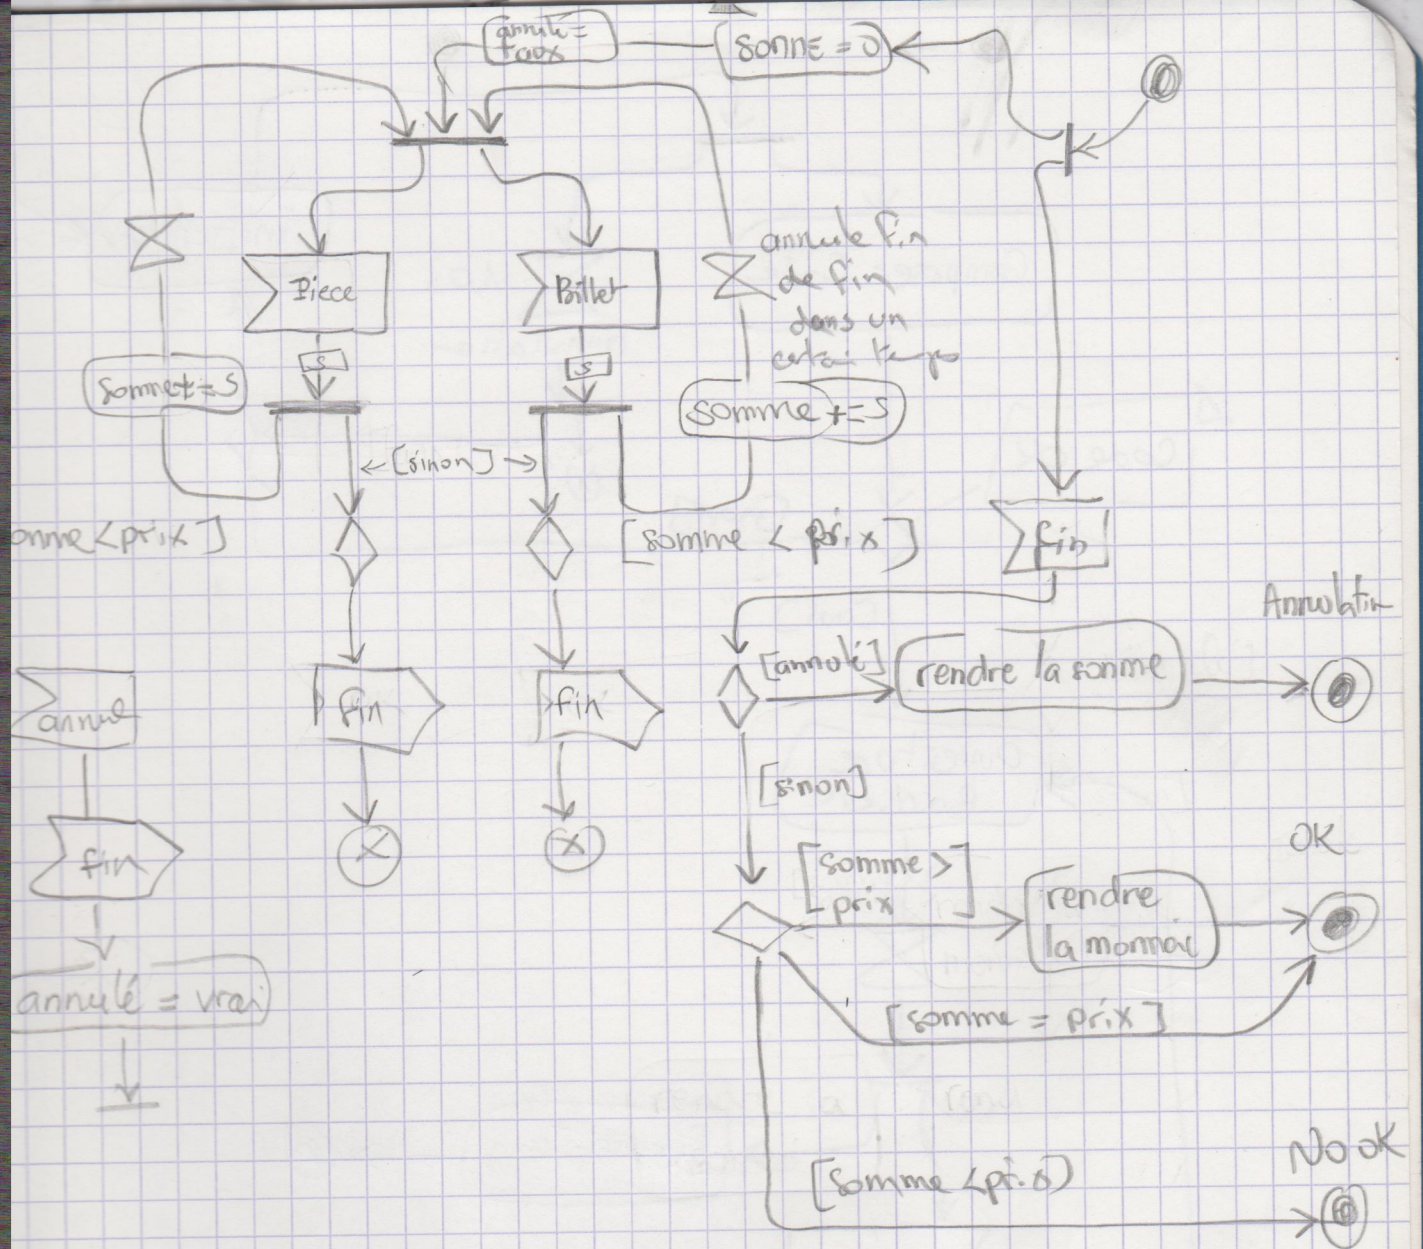 annulé =
faux
somme = 0
Piece
Billet
annule fin
de fin
dans un
certain temps
s
s
somme += s
somme += s
[sinon]
onme < prix ]
[somme < prix ]
fin
Annulation
[annulé]
rendre la somme
annul
fin
fin
[sinon]
OK
[somme >
prix ]
fin
rendre
la monnaie
annulé = vrai
[somme = prix ]
No OK
[somme < prix)